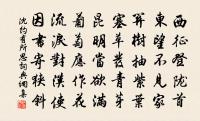 西征登隴首
東望不見家
關樹抽紫葉
塞草發青芽
昆明當欲滿
葡萄應作花
流淚對漢使
因書寄狹斜
沈約有所思詞典網集